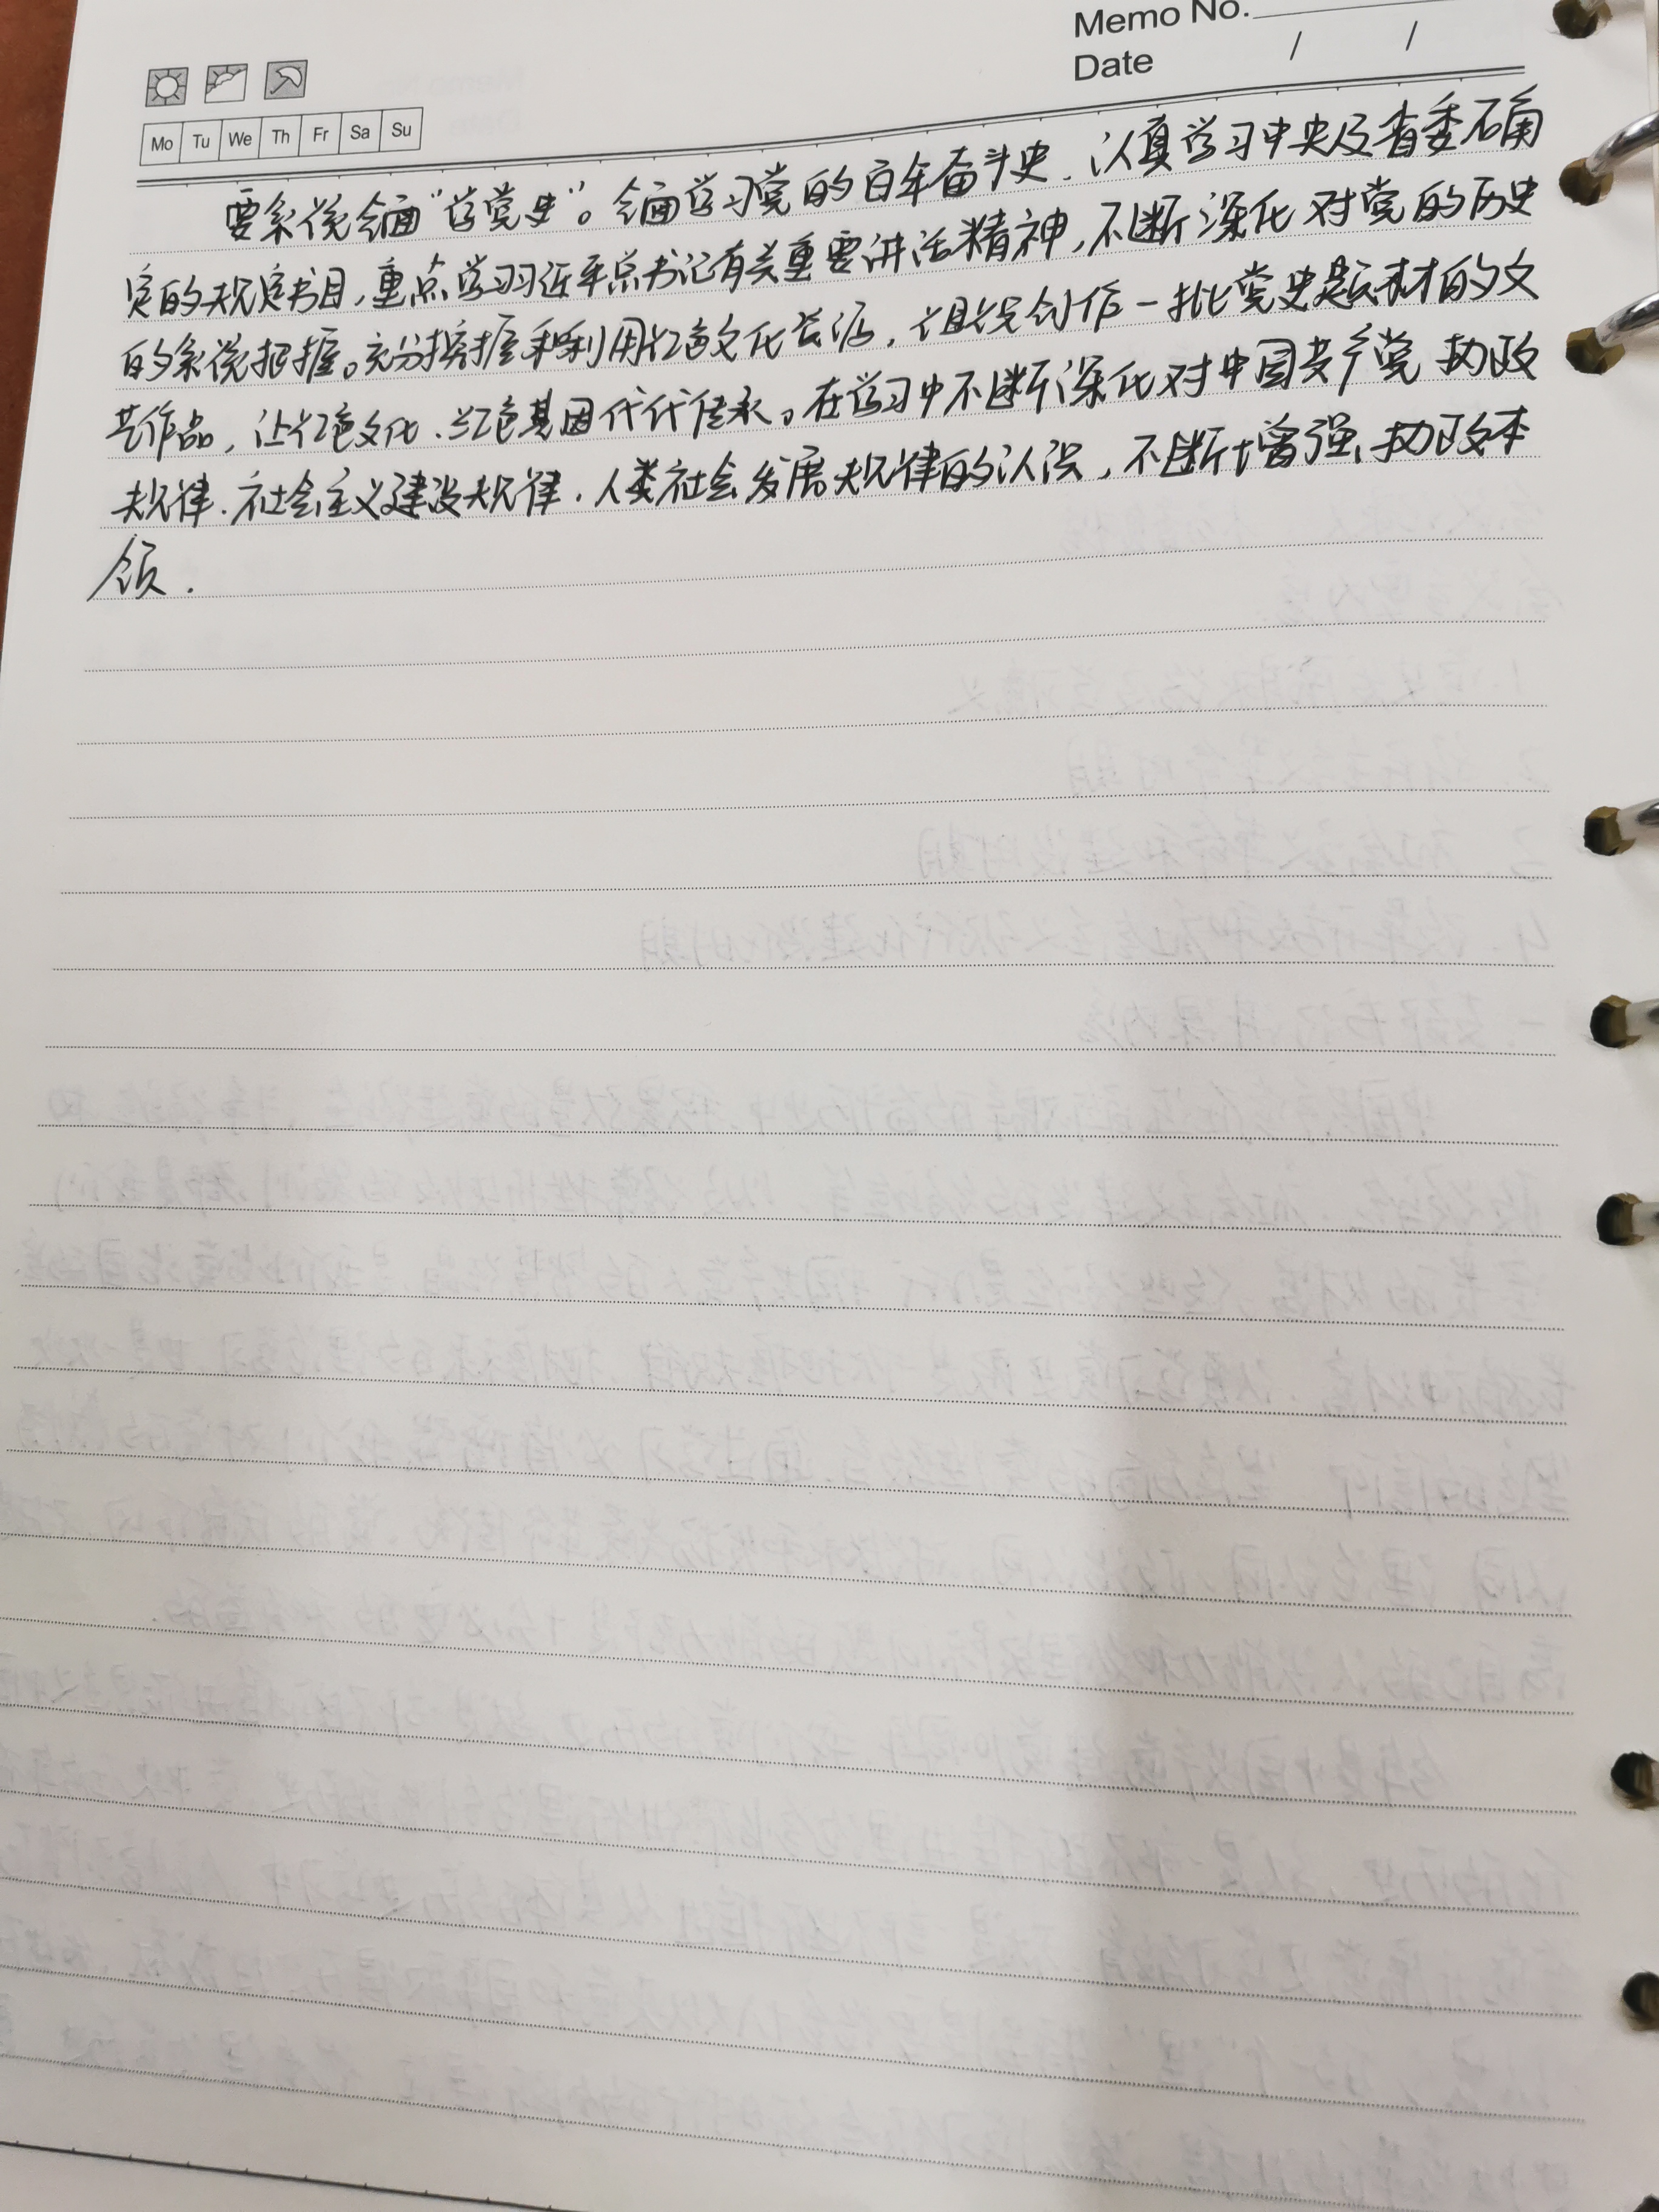 Memo No.
Date / /
Mo Tu We Th Fr Sa Su
要系统全面“学党史”。全面学习党的百年奋斗史、认真学习中央及省委确
定的规定书目，重点学习习近平总书记有关重要讲话精神，不断深化对党的历史
的系统把握。充分挖掘和利用红色文化资源，组织创作一批党史题材的文
艺作品，让红色文化、红色基因代代传承。在学习中不断深化对中国共产党执政
规律、社会主义建设规律、人类社会发展规律的认识，不断增强执政本
领.